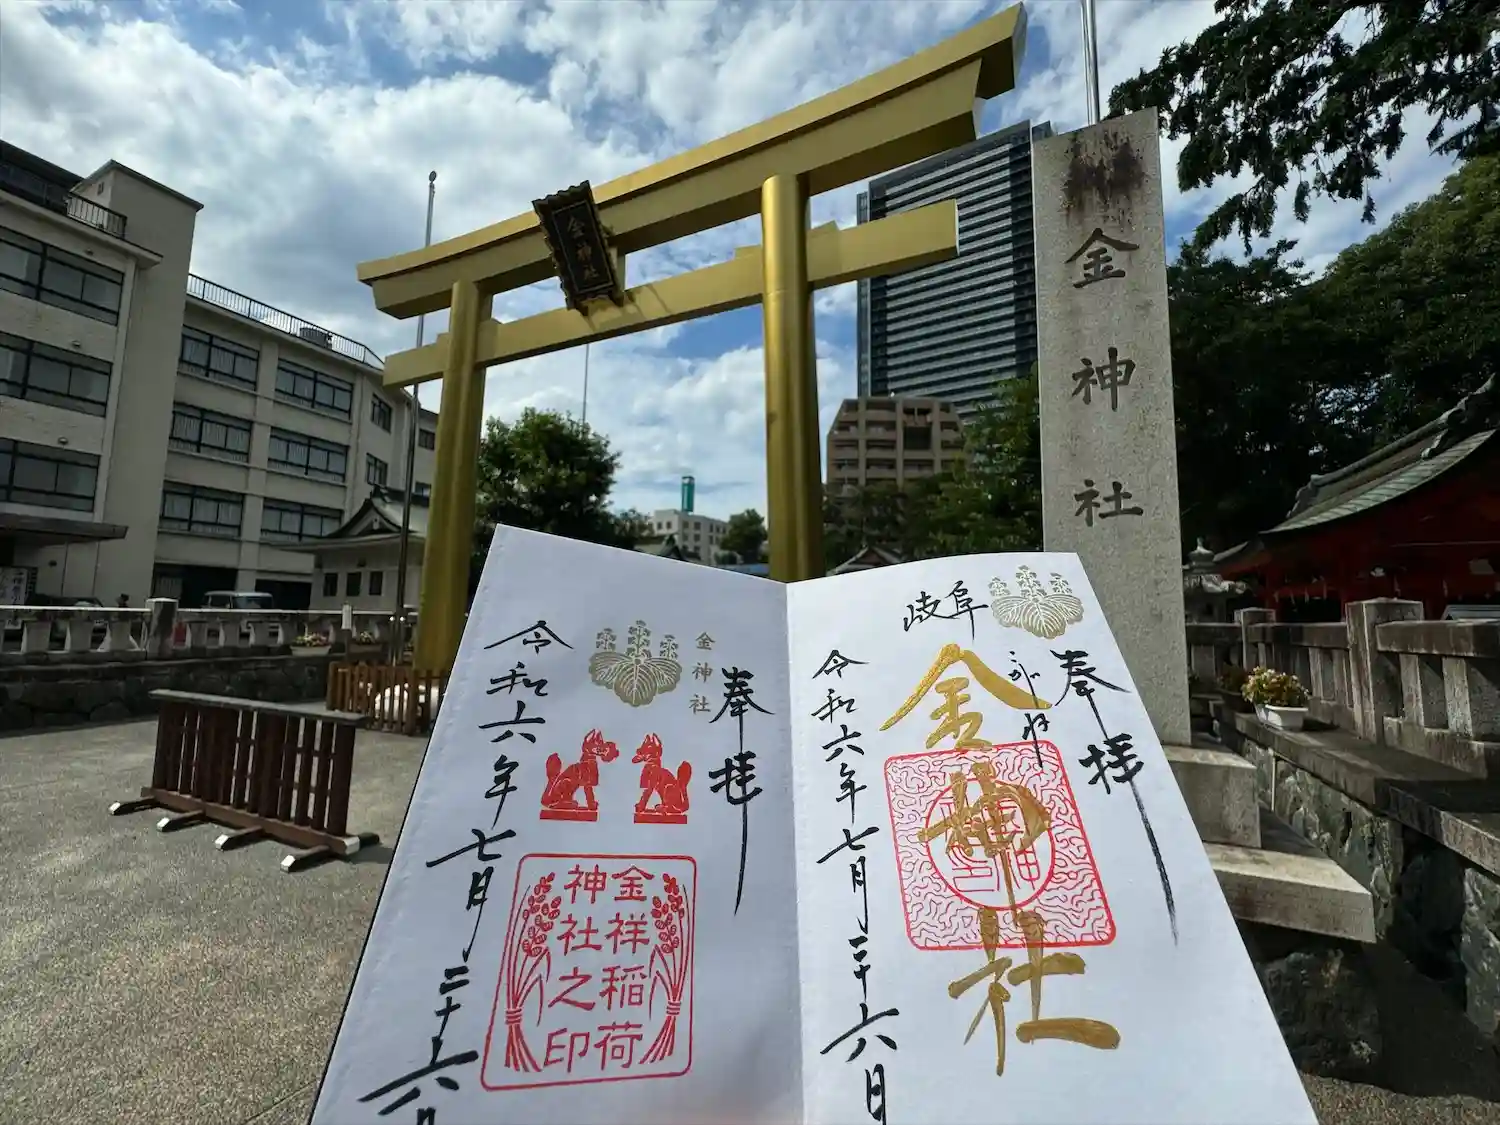 金神社
金神社
奉拝
岐阜
こがね
金神社
令和六年七月二十六日
奉拝
金神社
金祥稲荷
神社之印
令和六年七月二十六日